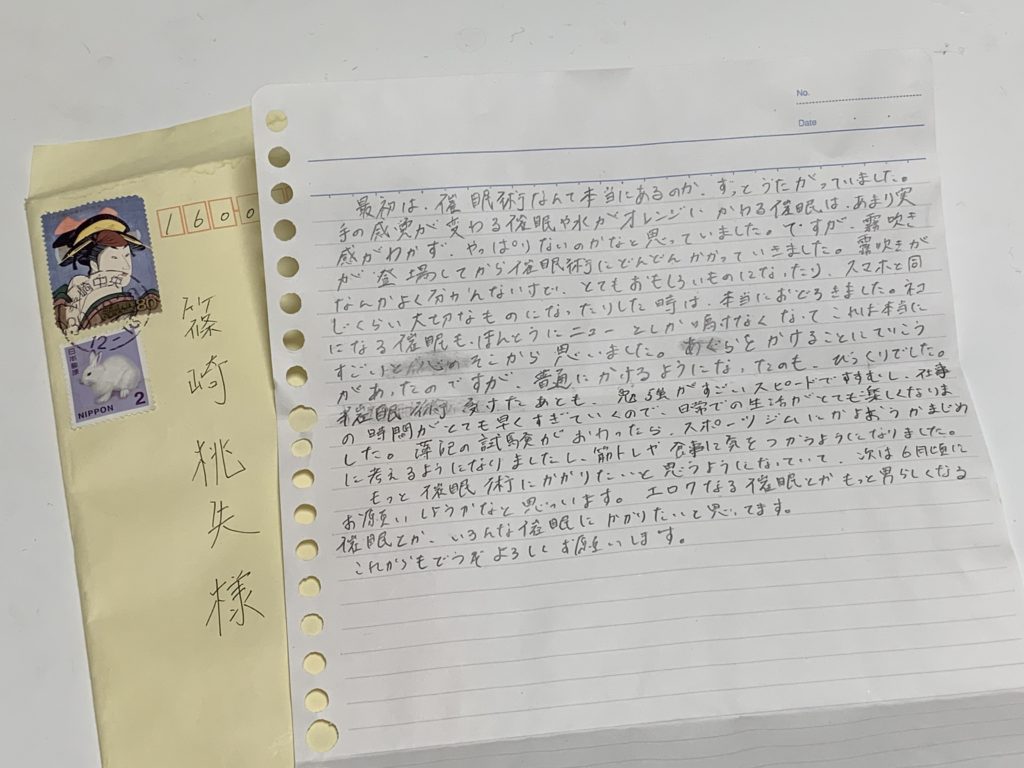 No.
Date
1600
篠崎桃失様
日本郵便
NIPPON
2
80
最初は、催眠術なんて本当にあるのか、ずっとうたがっていました。
手の感覚が変わる催眠や水がオレンジにかわる催眠は、あまり実
感がわかず、やっぱりないのかなと思っていました。ですが、霧吹き
が登場してから催眠術にどんどんかかっていきました。霧吹きが
なんかよく分かんないすで、とてもおもしろいものになったり、スマホと同
じくらい大切なものになったりした時は、本当におどろきました。ネコ
になる催眠も、ほんとうにニューとしか鳴けなくなってこれは本当に
すごいと心のそこから思いました。あぐらをかけることにていこう
があったのですが、普通にかけるようになったのも、びっくりでした。
催眠術受けたあとも、勉強がすごいスピードですすむし、仕事
の時間がとても早くすぎていくので、日常での生活がとても楽しくなりま
した。簿記の試験がおわったら、スポーツジムにかよおうかまじめ
に考えるようになりましたし、筋トレや食事に気をつかうようになりました。
もっと催眠術にかかりたいと思うようになっていて、次は6月頃に
お願いしようかなと思っいます。エロくなる催眠とかもっと男らしくなる
催眠とか、いろんな催眠にかかりたいと思ってます。
これからもどうぞよろしくお願いします。